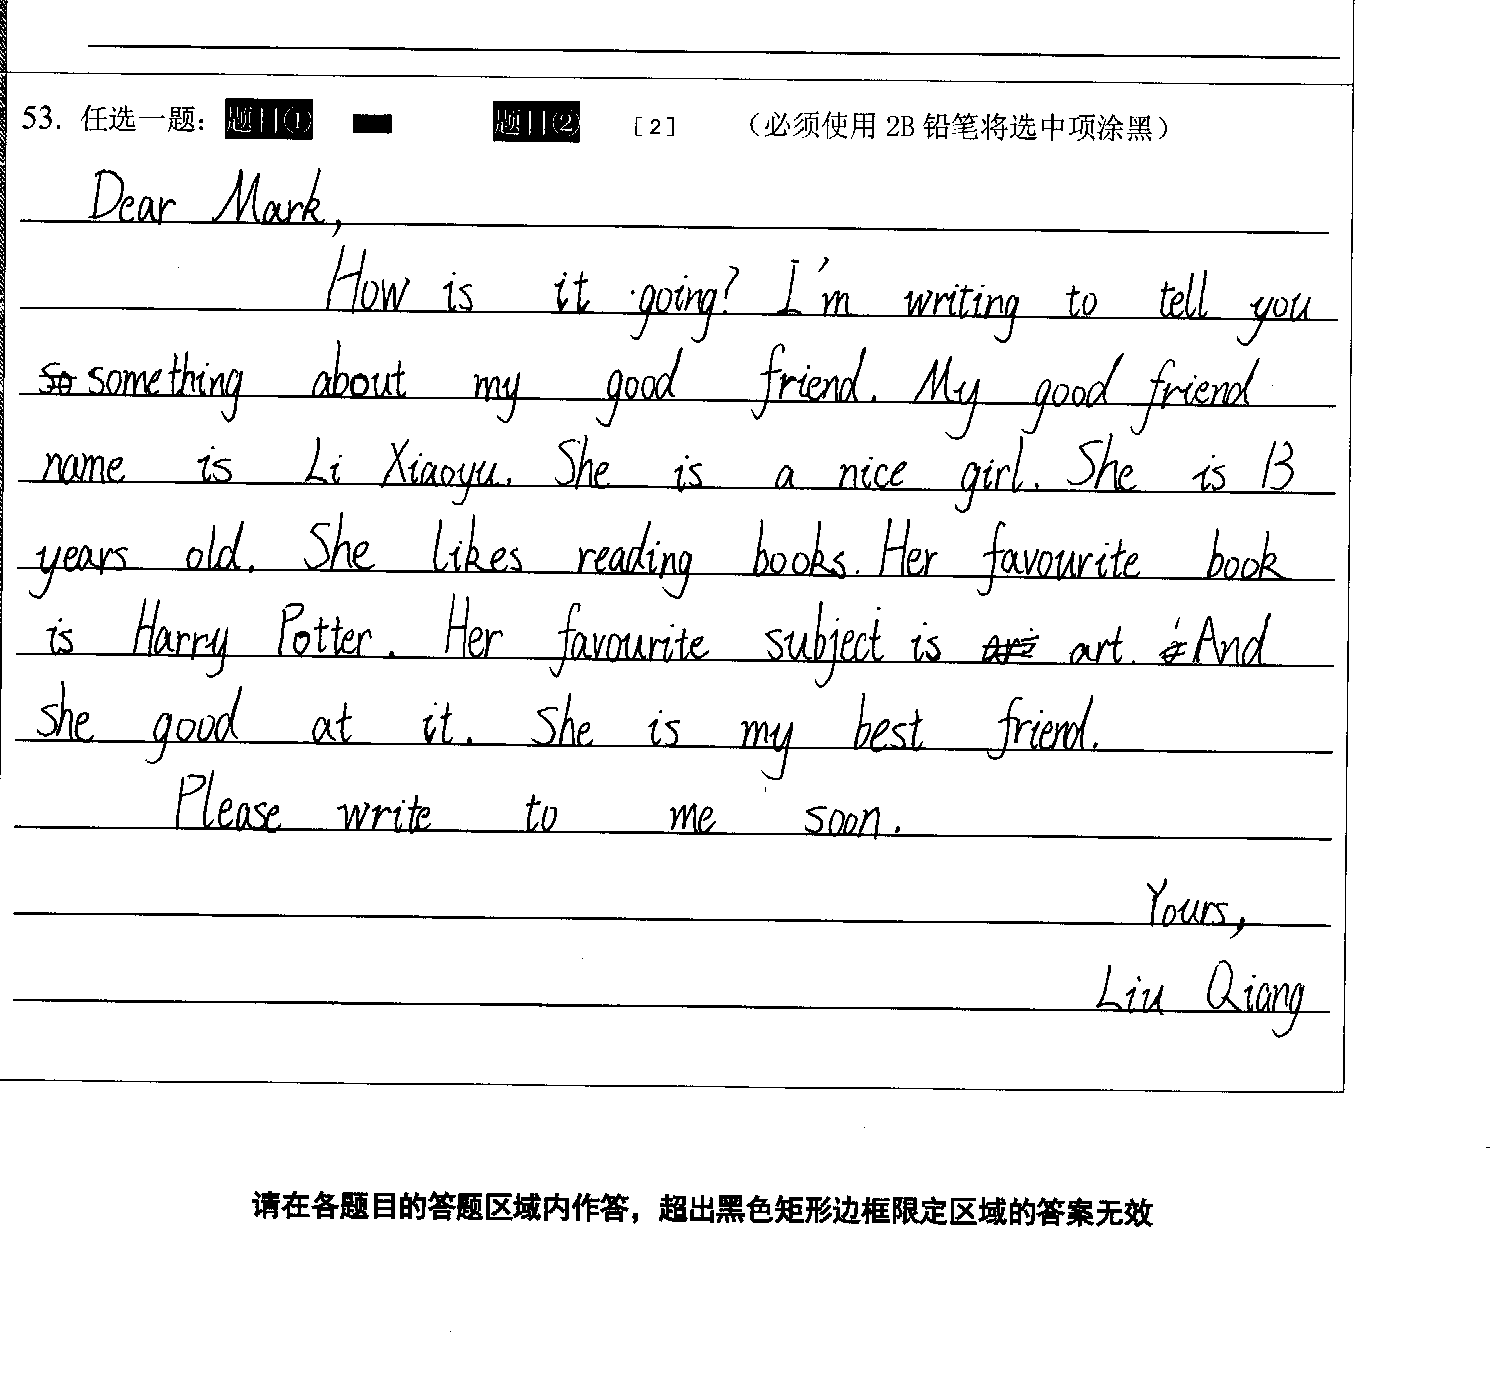 53. 任选一题： 题目① 题目② [2] （必须使用 2B 铅笔将选中项涂黑）
Dear Mark,
How is it going? I'm writing to tell you
something about my good friend. My good friend
name is Li Xiaoyu. She is a nice girl. She is 13
years old. She likes reading books. Her favourite book
is Harry Potter. Her favourite subject is art. And
she good at it. She is my best friend.
Please write to me soon.
Yours,
Liu Qiang
请在各题目的答题区域内作答，超出黑色矩形边框限定区域的答案无效